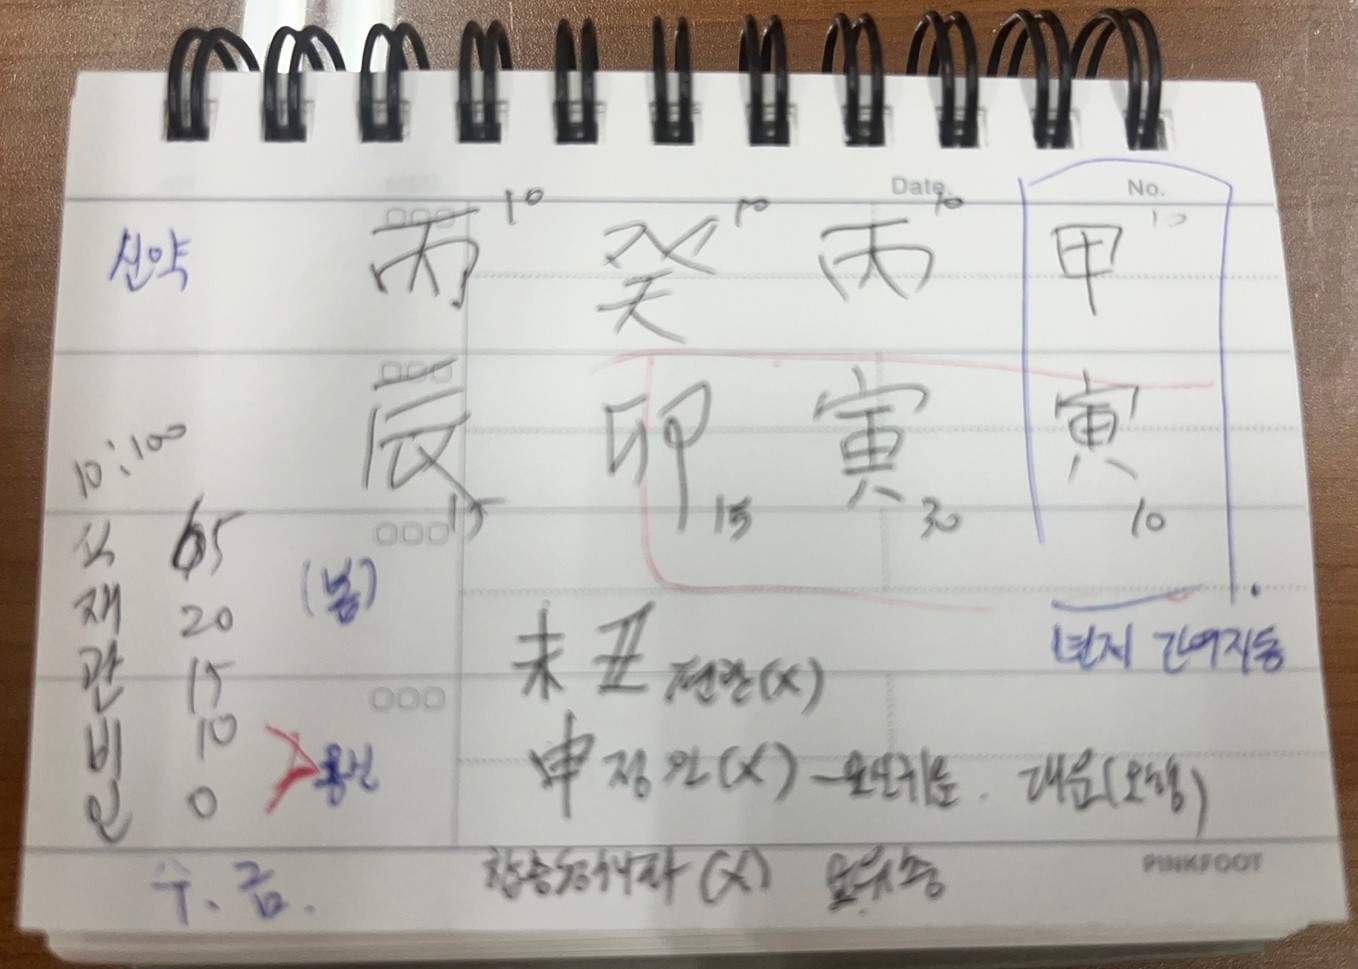 Date. No.
신약 丙 10 癸 10 丙 10 甲 10
辰 15 卯 15 寅 30 寅 10
10:100
식 65
재 20
관 15
비 10
인 0
(봄)
용신
수. 금.
년지 간여지동
未 丑 편관(X)
申 정인(X) 대운(오행)
(X)
PINKFOOT